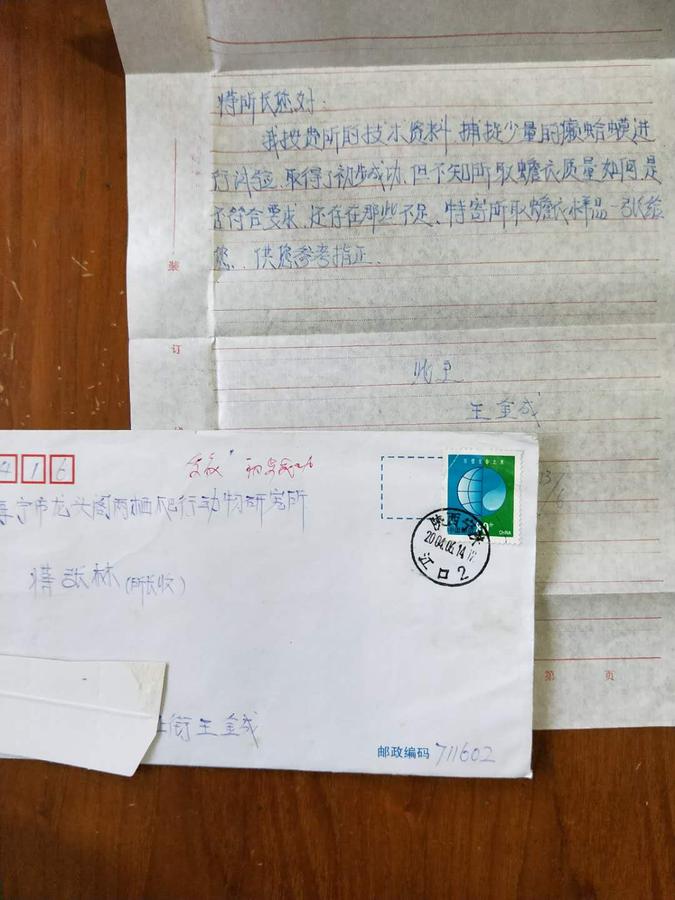 蒋所长您好:
我按贵所的技术资料 捕捉少量的癞蛤蟆进
行试验.取得了初步成功.但不知所取蟾衣质量如何.是
否符合要求.还存在那些不足、特寄所取蟾衣样品一张给
您、供您参考指正.
此至
王金成
装
订
第 页
416
海宁市龙头阁两栖爬行动物研究所
蒋张林(所长收)
街王金成
邮政编码 711602
CHINA
陕西
2004.06.14
江口 2